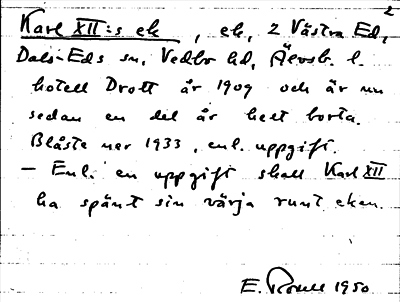 2
Karl XII:s ek, ek, 2 Västra Ed,
Dals-Eds sn, Vedbo hd, Älvsb. l.
hotell Drott år 1909 och är nu
sedan en del år helt borta.
Blåste ner 1933, enl. uppgift.
— Enl. en uppgift skall Karl XII
ha spänt sin värja runt eken.
E. 1950.